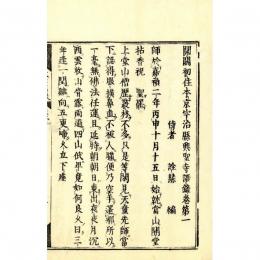 開闢初住本京宇治縣興聖寺語錄卷第一
侍者 詮慧 編
師於嘉禎二年丙申十月十五日始就當山開堂
拈香祝 聖罷
上堂山僧歷叢林不多只是等閑見天童先師當
下認得眼橫鼻直不被人瞞便乃空手還鄉所以
一毫無佛法任運且延時朝朝日東出夜夜月沉
西雲收山骨露雨過四山低畢竟如何良久曰三
年逢一閏雞向五更啼久立下座